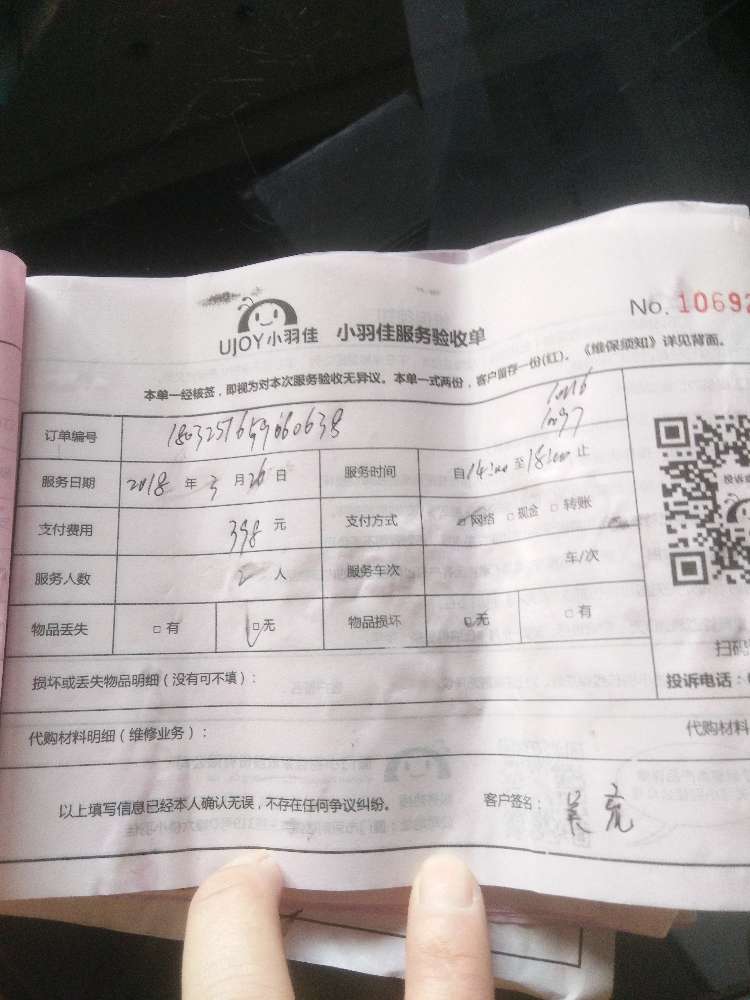 No. 1069
UJOY小羽佳 小羽佳服务验收单
本单一经核签,即视为对本次服务验收无异议。本单一式两份,客户留存一份(红)。《维保须知》详见背面。
订单编号 1803251659660638 1016
1097
服务日期 2018 年 3 月 26 日 服务时间 自 14:00 至 18:00 止
支付费用 398 元 支付方式 ☑网络 □现金 □转账
服务人数 2 人 服务车次 车/次
物品丢失 □有 ☑无 物品损坏 ☑无 □有
扫码
损坏或丢失物品明细(没有可不填): 投诉电话:
代购材料明细(维修业务): 代购材料
以上填写信息已经本人确认无误,不存在任何争议纠纷。 客户签名: 吴亮